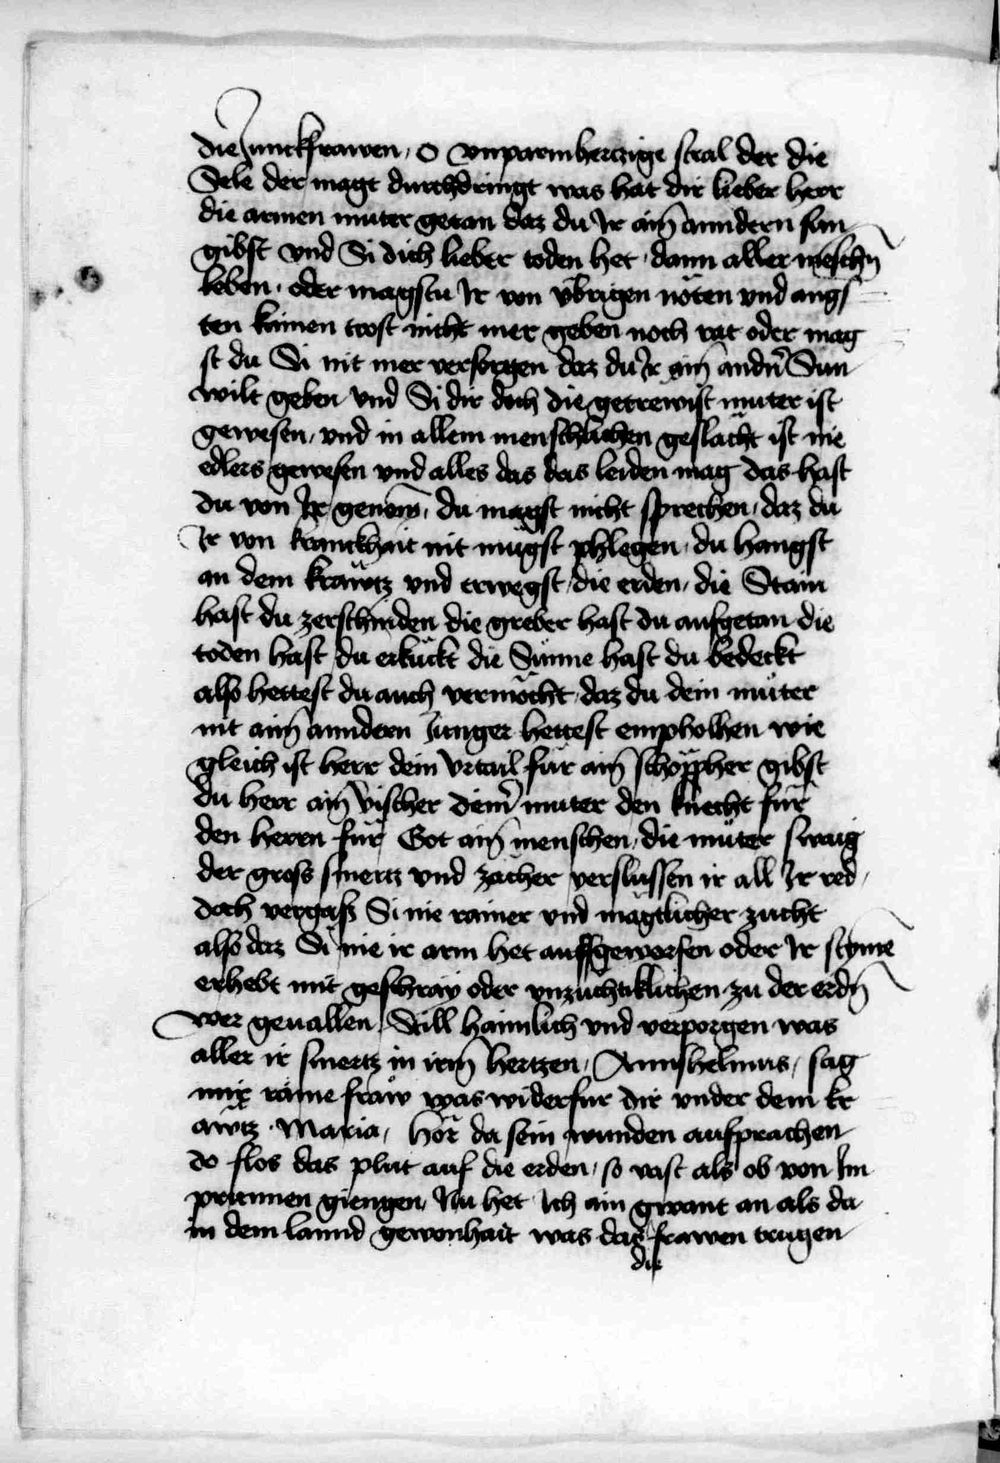 die Junckfrawen, O vnparmhertzige stral der die
Sele der magt durchdringt was hat dir lieber herr
die armen muter getan daz du Ir ain̄ anndern sun
gibst vnd Si dich lieber toden het, dann aller mēschn̄
leben, oder magstu Ir von vbrigen nöten vnd angs=
ten kainen trost nicht mer geben noch rat oder mag
st du Si nit mer versorgen daz du Ir ain̄ andn̄ Sun
wilt geben vnd Si dir doch die getrewist muter ist
gewesen, vnd in allem menschlichen geslächt ist nie
edlers gewesen vnd alles das das leiden mag das hast
du von Ir genom̄, du magst nicht sprechen, daz du
Ir von kranckhait nit mügst phlegen, du hangst
an dem kräwtz vnd erwegst die erden, die Stain
hast du zerschniden die greber hast du aufgetan die
toden hast du erkückt die Sünne hast du bedeckt
also hettest du auch vermöcht, daz du dein müter
nit ain̄ anndern Junger hettest empholhen wie
gleich ist herr dein Vrtail für ain̄ schöppher gibst
du herr ain̄ vischer dein̄ muter den knecht für
den herrn für Got ain̄ menschen, die müter swaig
der gross smertz vnd zächer verslussen ir all Ir red,
doch vergass Si nie rainer vnd mägtlicher zucht
also daz Si nie ir arm het auffgeworfen oder Ir stym̄e
erhebt mit geschray oder vnzüchtiklichen zu der erdn̄
wer geuallen, Still haimlich vnd verporgen was
aller ir smertz in irm̄ hertzen, Annshelmus, sag
mir raine fraw was widerfur dir vnder dem kr
äwtz. Maria, Hör da sein wunden aufprachen
do flos das plut auf die erden, so vast als ob von Im
prunnen giengen, Nu het Ich ain gwant an als da
in dem lannd gewonhait was das frawen trugen
die